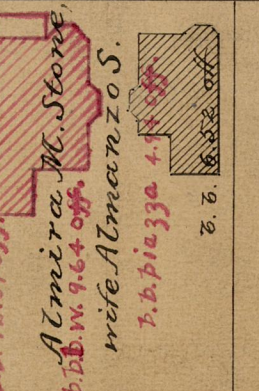 Almira M. Stone,
b.b.w. 9.64 off.
wife Almanzo S.
b.b. piazza 4.94 off.
b.b. 6.52 off